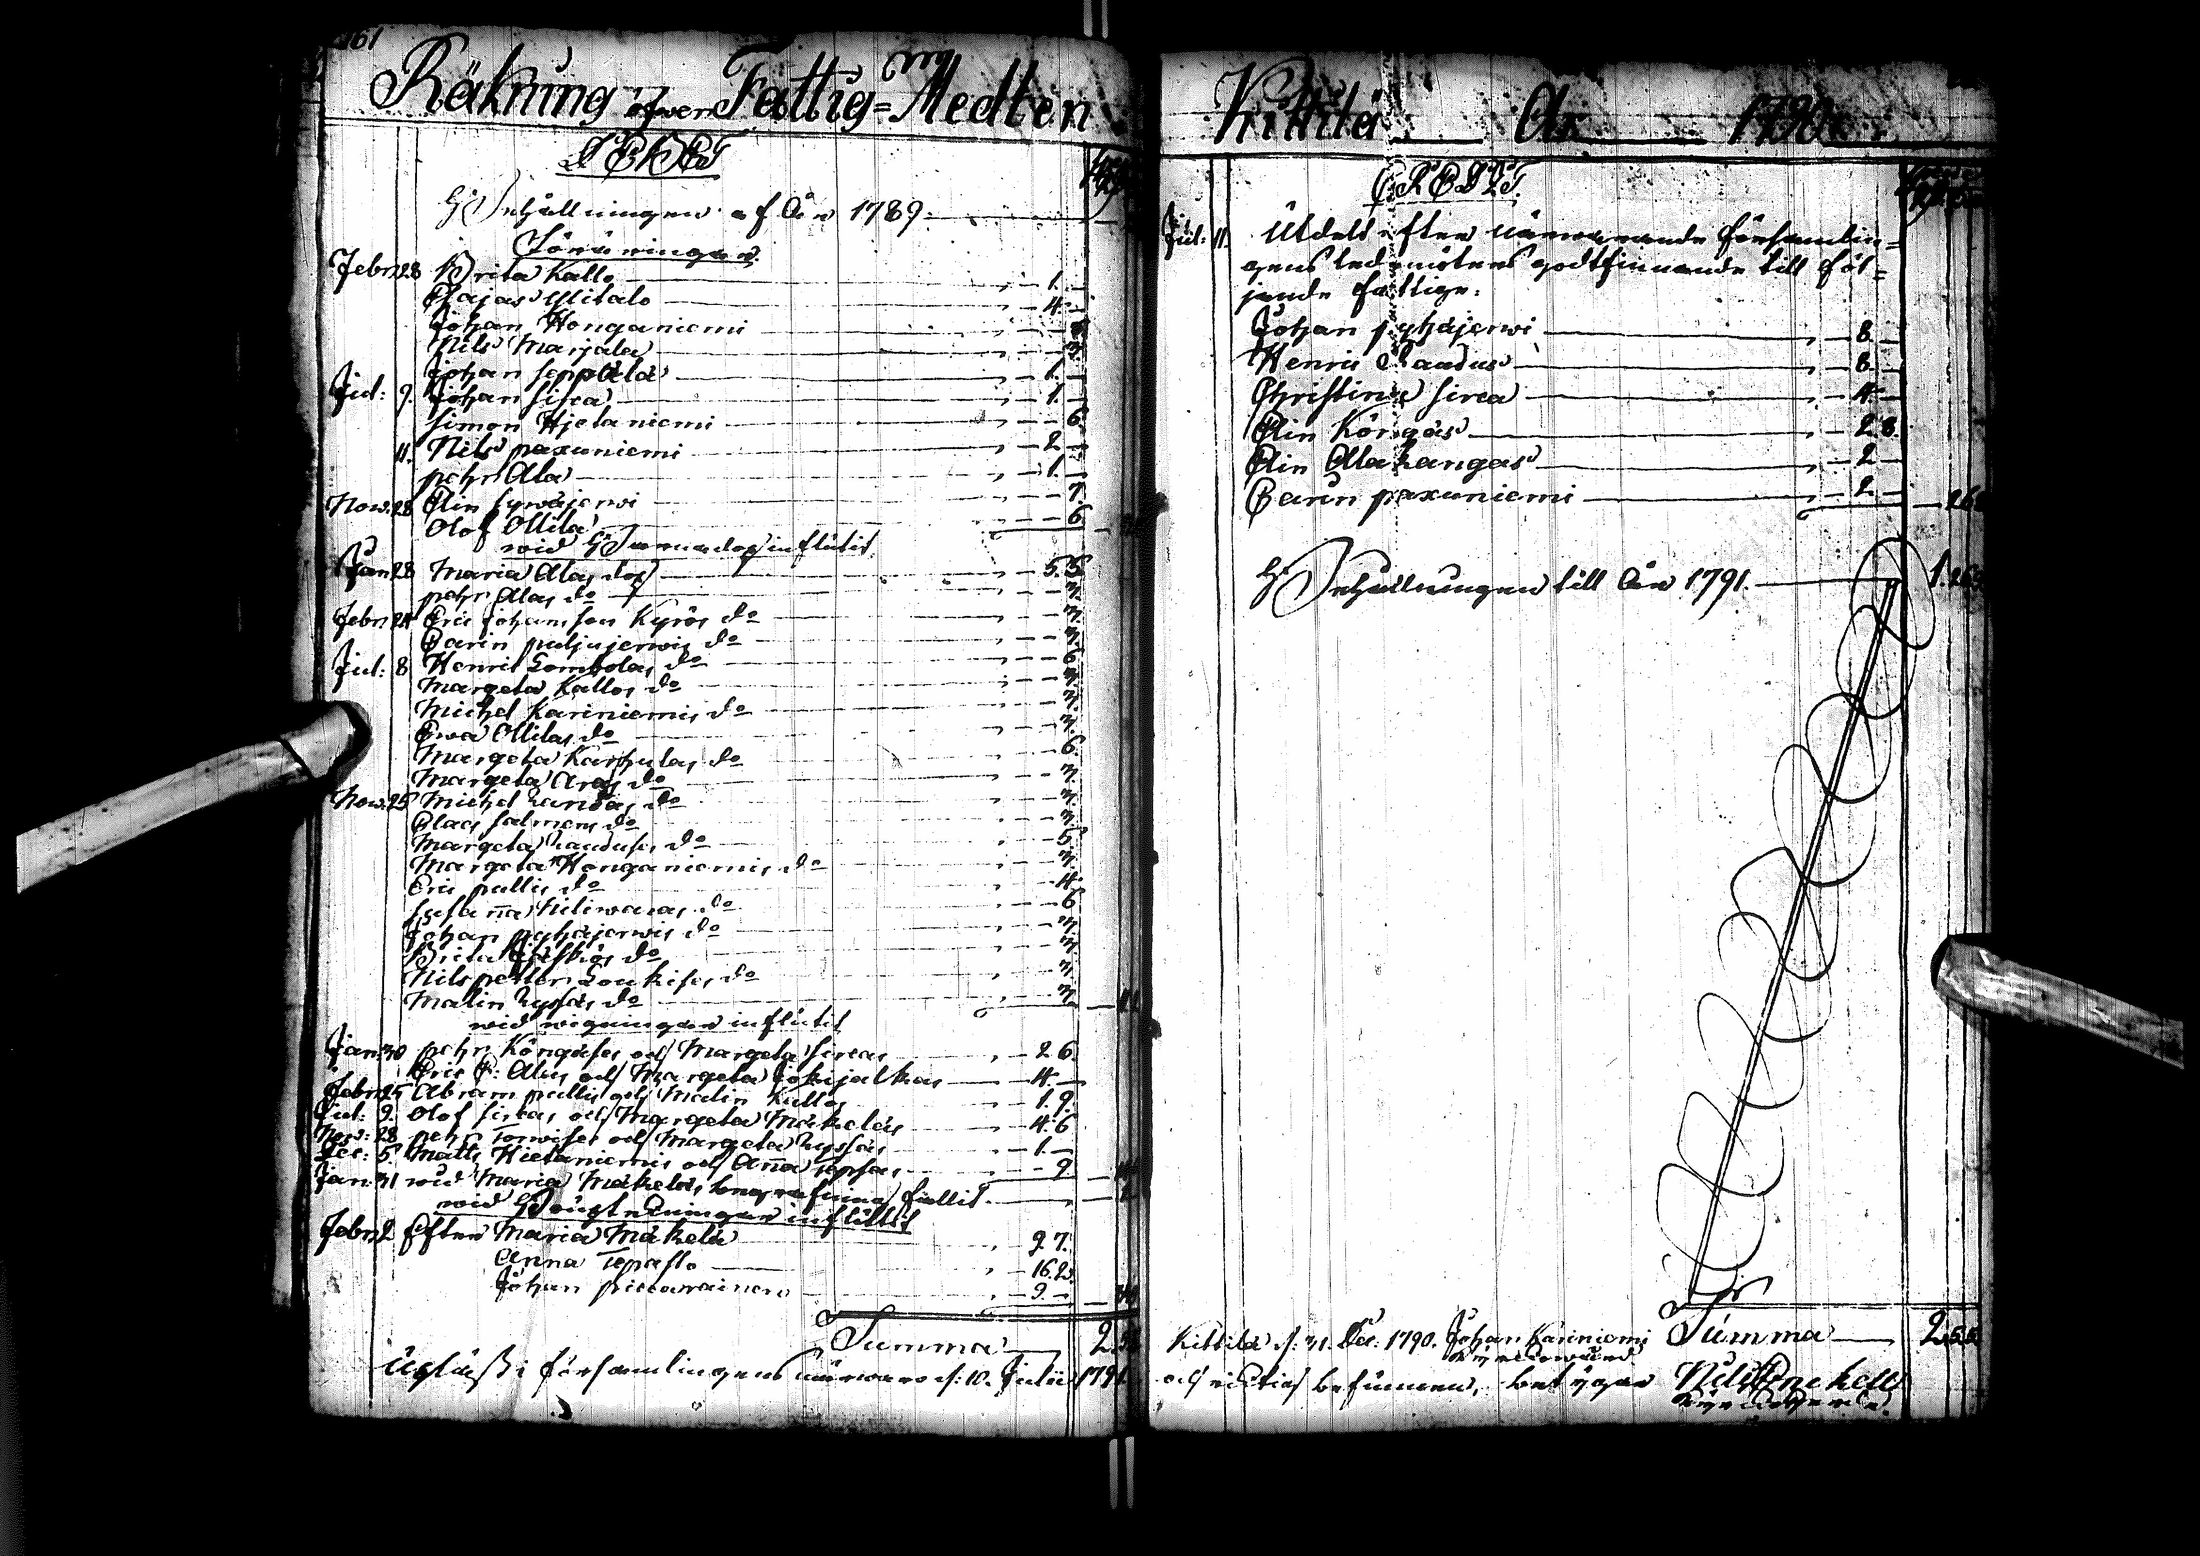 161
Räkning öfver Fattig=Medlen
DEBET
Behållningen af År 1789.
Föräringar
Febr: 28 Brita Kallo 1.
Pajas Ylitalo 4.
Johan Honganiemi
Nils Marjala 3.
Johan Seppälä 1.
Jul: 9. Johan Sirca 1.
Simon Hjetaniemi 6.
11. Nils paxuniemi 2
pehr Ala 1.
Nov. 28 Elin Sywäjerwi 7.
Olof Ollila 6.
wid Barnadop influtit
Jan 28 Maria Alas dop 5.8.
pehr Alas do 3.
Febr: 24 Eric Johansson Kyrös do 3.
Carin puljujerwis do 3.
Jul: 8 Henric Lombolas do 6
Margeta Kallos do 3.
Michel Kariniemis do 3.
Ewa Ollilas do 3.
Margeta Karhulas do 6.
Margeta Aras do 3.
Nov. 25 Michel do 3.
Clas Salmens do 3.
Margeta Raudus do 5
Margeta Honganiemis do 3.
Eric pallis do 4.
Susanna Niliwaras do 6
Johan pyhäjerwis do 3.
Brita do 3.
Nils petter Loukises do 3.
Malin Ryssäs do 3.
wid wigningar influtit
Jan: 30 pehr Köngäses och Margeta Sircas 2 6.
Eric E: Alas och Margeta Jokijalkas 4.
Febr: 25 Abram pallis och Malin Kallos 1.9.
Jul: 9. Olof Sircas och Margeta Mäkeläs 4.6
Nov: 28 pehr Torwises och Margeta Ryssäs 1.
Dec: 5. Matts Hietaniemis och Anna Tepsas 9
Jan: 31 wid Maria Mäkeläs begrafning fallit
wid Boupteckningar influtit
Febr: 2 Efter Maria Mäkelä 9 7.
Anna Tepasto 16.2.
Johan 9.
Summa 2.
Upläst i församlingens närwaro d: 10. Julii 1791
Kittilä År 1790.
CREDIT.
Jul: 11. Utdelt efter närwarande församlin=
gens ledamöters godtfinnande till föl=
jande fattige:
Johan pyhäjerwi 8.
Henric Raudus 8.
Christina Sirca 4.
Elin Köngäs 2 8.
Elin Alakangas 2
Carin paxuniemi 2
Behållningen till År 1791. 1.
Summa 2.
Kittilä d: 31. Dec. 1790. Johan Kariniemi
Kyrckowärd
och richtig befunnen, betygar